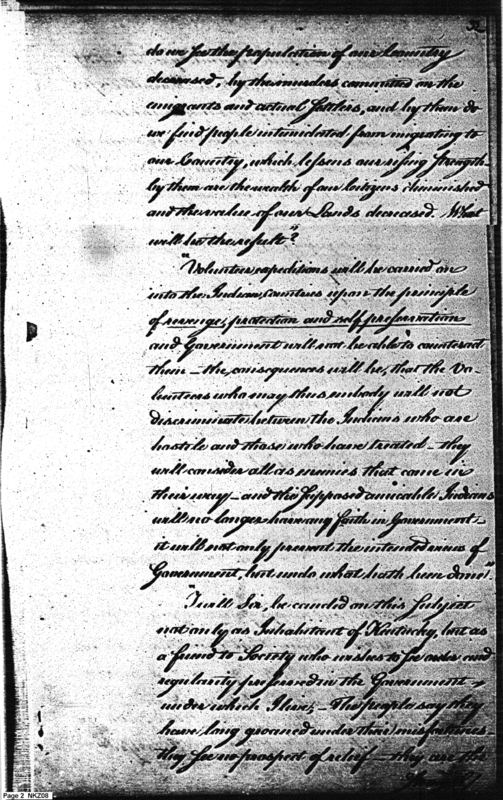 32
do we see the population of our Country
decreased, by the murders committed on the
emigrants and actual Settlers, and by them do
we find people intimidated from migrating to
our Country, which lessens our rising strength
by them are the wealth of our Citizens diminished
and the value of our Lands decreased. What
will be the result?
"Volunteer expeditions will be carried on
into the Indian Countries upon the principle
of revenge, protection and self preservation
and Government will not be able to counteract
them – the consequences will be, that the Vo-
lunteers who may thus embody will not
discriminate between the Indians who are
hostile and those who have treated – they
will consider all as enemies that come in
their way – and the supposed amicable Indians
will no longer have any faith in Government –
it will not only prevent the intended views of
Government, but undo what hath been done"
"I will Sir, be candid on this subject
not only as Inhabitant of Kentucky, but as
a friend to Society who wishes to see order and
regularity preserved in the Government
under which I live, – The people say they
have long groaned under their misfortunes
they see no prospect of relief – they are the
Page 2 NKZ08